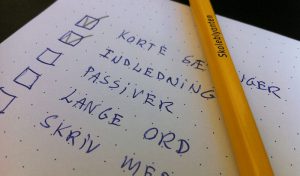 KORTE SÆ NGER
INDLEDNING
PASSIVER
LANGE ORD
SKRIV
Skoleblyanten